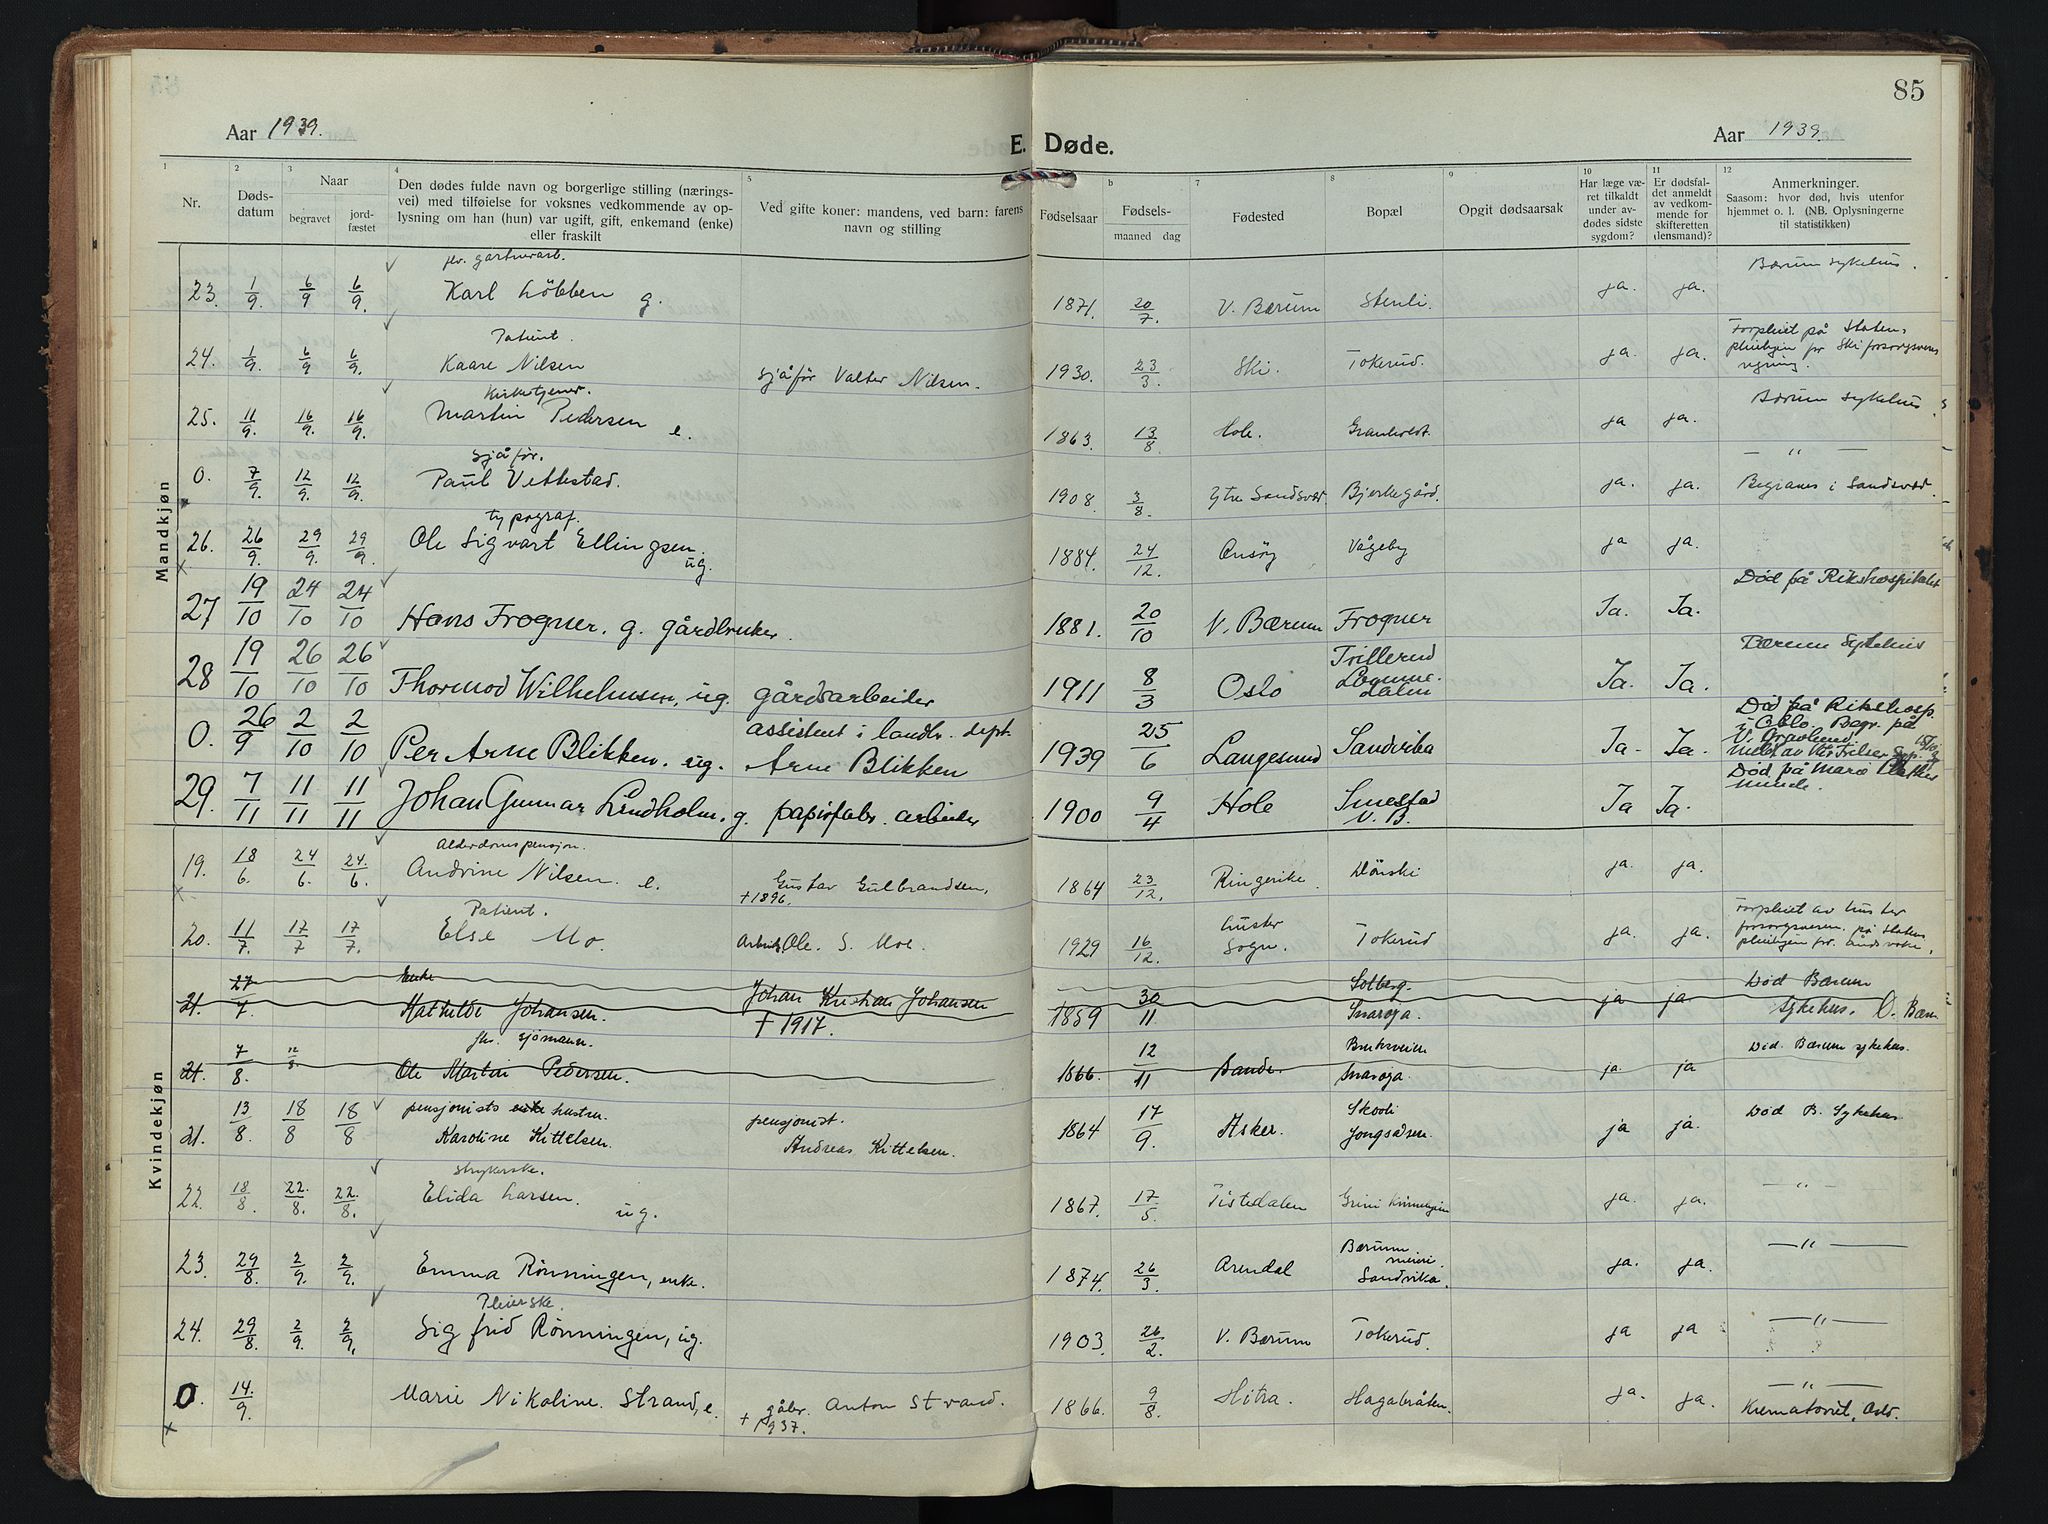 85
Aar 1939.
E. Døde.
Aar 1939.
1 2 3 4 5 b 7 8 9 10 11 12
Nr.
Døds-
datum
Naar
begravet
jord-
fæstet
Den dødes fulde navn og borgerlige stilling (nærings-
vei) med tilføielse for voksnes vedkommende av op-
lysning om han (hun) var ugift, gift, enkemand (enke)
eller fraskilt
Ved gifte koner: mandens, ved barn: farens
navn og stilling
Fødselsaar
Fødsels-
maaned dag
Fødested
Bopæl
Opgit dødsaarsak
Har læge væ-
ret tilkaldt
under av-
dødes sidste
sygdom?
Er dødsfal-
det anmeldt
av vedkom-
mende for
skifteretten
(lensmand)?
Anmerkninger.
Saasom: hvor død, hvis utenfor
hjemmet o. l. (NB. Oplysningerne
til statistikken)
Mandkjøn
gartnerarb. Bærum sykehus.
23. 1/9. 6/9 6/9. Karl Løbben g. 1871. 20/7. V. Bærum Stenli. ja. ja.
Patient. Forpleiet på Statens
24. 1/9. 6/9. 6/9. Kaare Nilsen sjåfør Valter Nilsen. 1930. 23/3. Ski. Tokerud. ja. ja. pleiehjem for Ski forsorgsveres
Kirketjener. Bærum sykehus.
25. 11/9. 16/9. 16/9. Martin Pedersen e. 1863. 13/8 Hole. Granholdt. ja ja.
sjåfør. — " —
0. 7/9. 12/9. 12/9. Paul Vettestad. 1908. 3/8. Ytre Sandsvær Bjerkegård. ja. ja. Begraves i Sandsvær.
typograf.
26. 26/9. 29/9. 29/9. Ole Sigvart Ellingsen. ug. 1884. 24/12. Onsøy Vågeby ja ja.
27 19/10 24/10 24/10 Hans Frogner. g. gårdbruker. 1881. 20/10 V. Bærum Frogner Ja. Ja. Død på Rikshospitalet
28 19/10 26/10 26/10 Thormod Wilhelmsen, ug. gårdsarbeider 1911 8/3 Oslo Trillerud Lommedalen Ja. Ja. Bærum Sykehus
assistent i landbr. dept.
0. 26/9 2/10 2/10 Per Arne Blikken. ug. Arne Blikken 1939 25/6 Langesund Sandvika Ja- Ja- Død på Rikshosp.
i Oslo. Begr. på
V. Gravlund.
29. 7/11 11/11 11/11 Johan Gunnar Lindholm. g. papirfabr. arbeider 1900 9/4 Hole Smestad V. B. Ja Ja. Død på Marie Plathes
minde.
Kvindekjøn
Alderdomspensjon.
19. 18/6. 24/6. 24./6. Andrine Nilsen. e. Gustav Gulbrandsen, +1896. 1864 23/12. Ringerike. Dønski ja. ja.
Patient. Luster Forpleiet av Luster
20. 11/7. 17/7. 17/7. Else Mo. Arbeid. Ole. S. Moe. 1929 16/12. Sogn. Tokerud ja. ja. forsorgsvesen. på Statens
pleiehjem for. åndsvake.
Enke Solberg. Død Bærum
21. 27/7. Mathilde Johansen. Johan Kristian Johansen + 1917. 1859 30/11 Snarøya. ja ja Sykehus. Ø. Bærum
fhv. sjømann. Bruksveien Død. Bærum sykehus.
21. 7/8. 12/8. Ole Martin Pedersen. 1866. 12/11 Sande. Snarøya. ja. ja
pensjonists enke hustru. pensjonist. Skooli Død B. Sykehus
21. 13/8. 18/8 18/8 Karoline Kittelsen. Andreas Kittelsen. 1864 17/9. Asker. Jongsåsen. ja ja.
Strykerske.
22. 18/8. 22./8. 22./8. Elida Larsen. ug. 1867. 17/5. Tistedalen Grini Kvinnehjem ja. ja. — " —
Bærum meieri.
23. 29/8. 2/9. 2/9. Emma Rønningen, enke. 1874. 26/3. Arendal Sandvika. ja. ja. — " —
Pleierske.
24. 29/8. 2/9. 2/9. Sigfrid Rønningen, ug. 1903. 26/2. V. Bærum Tokerud. ja ja — " —
0. 14./9. Marie Nikoline Strand, e. gåbr. Anton Strand. + 1937. 1866. 9/8. Hitra. Hagabråten. ja. ja. — " —
Krematoriet, Oslo.